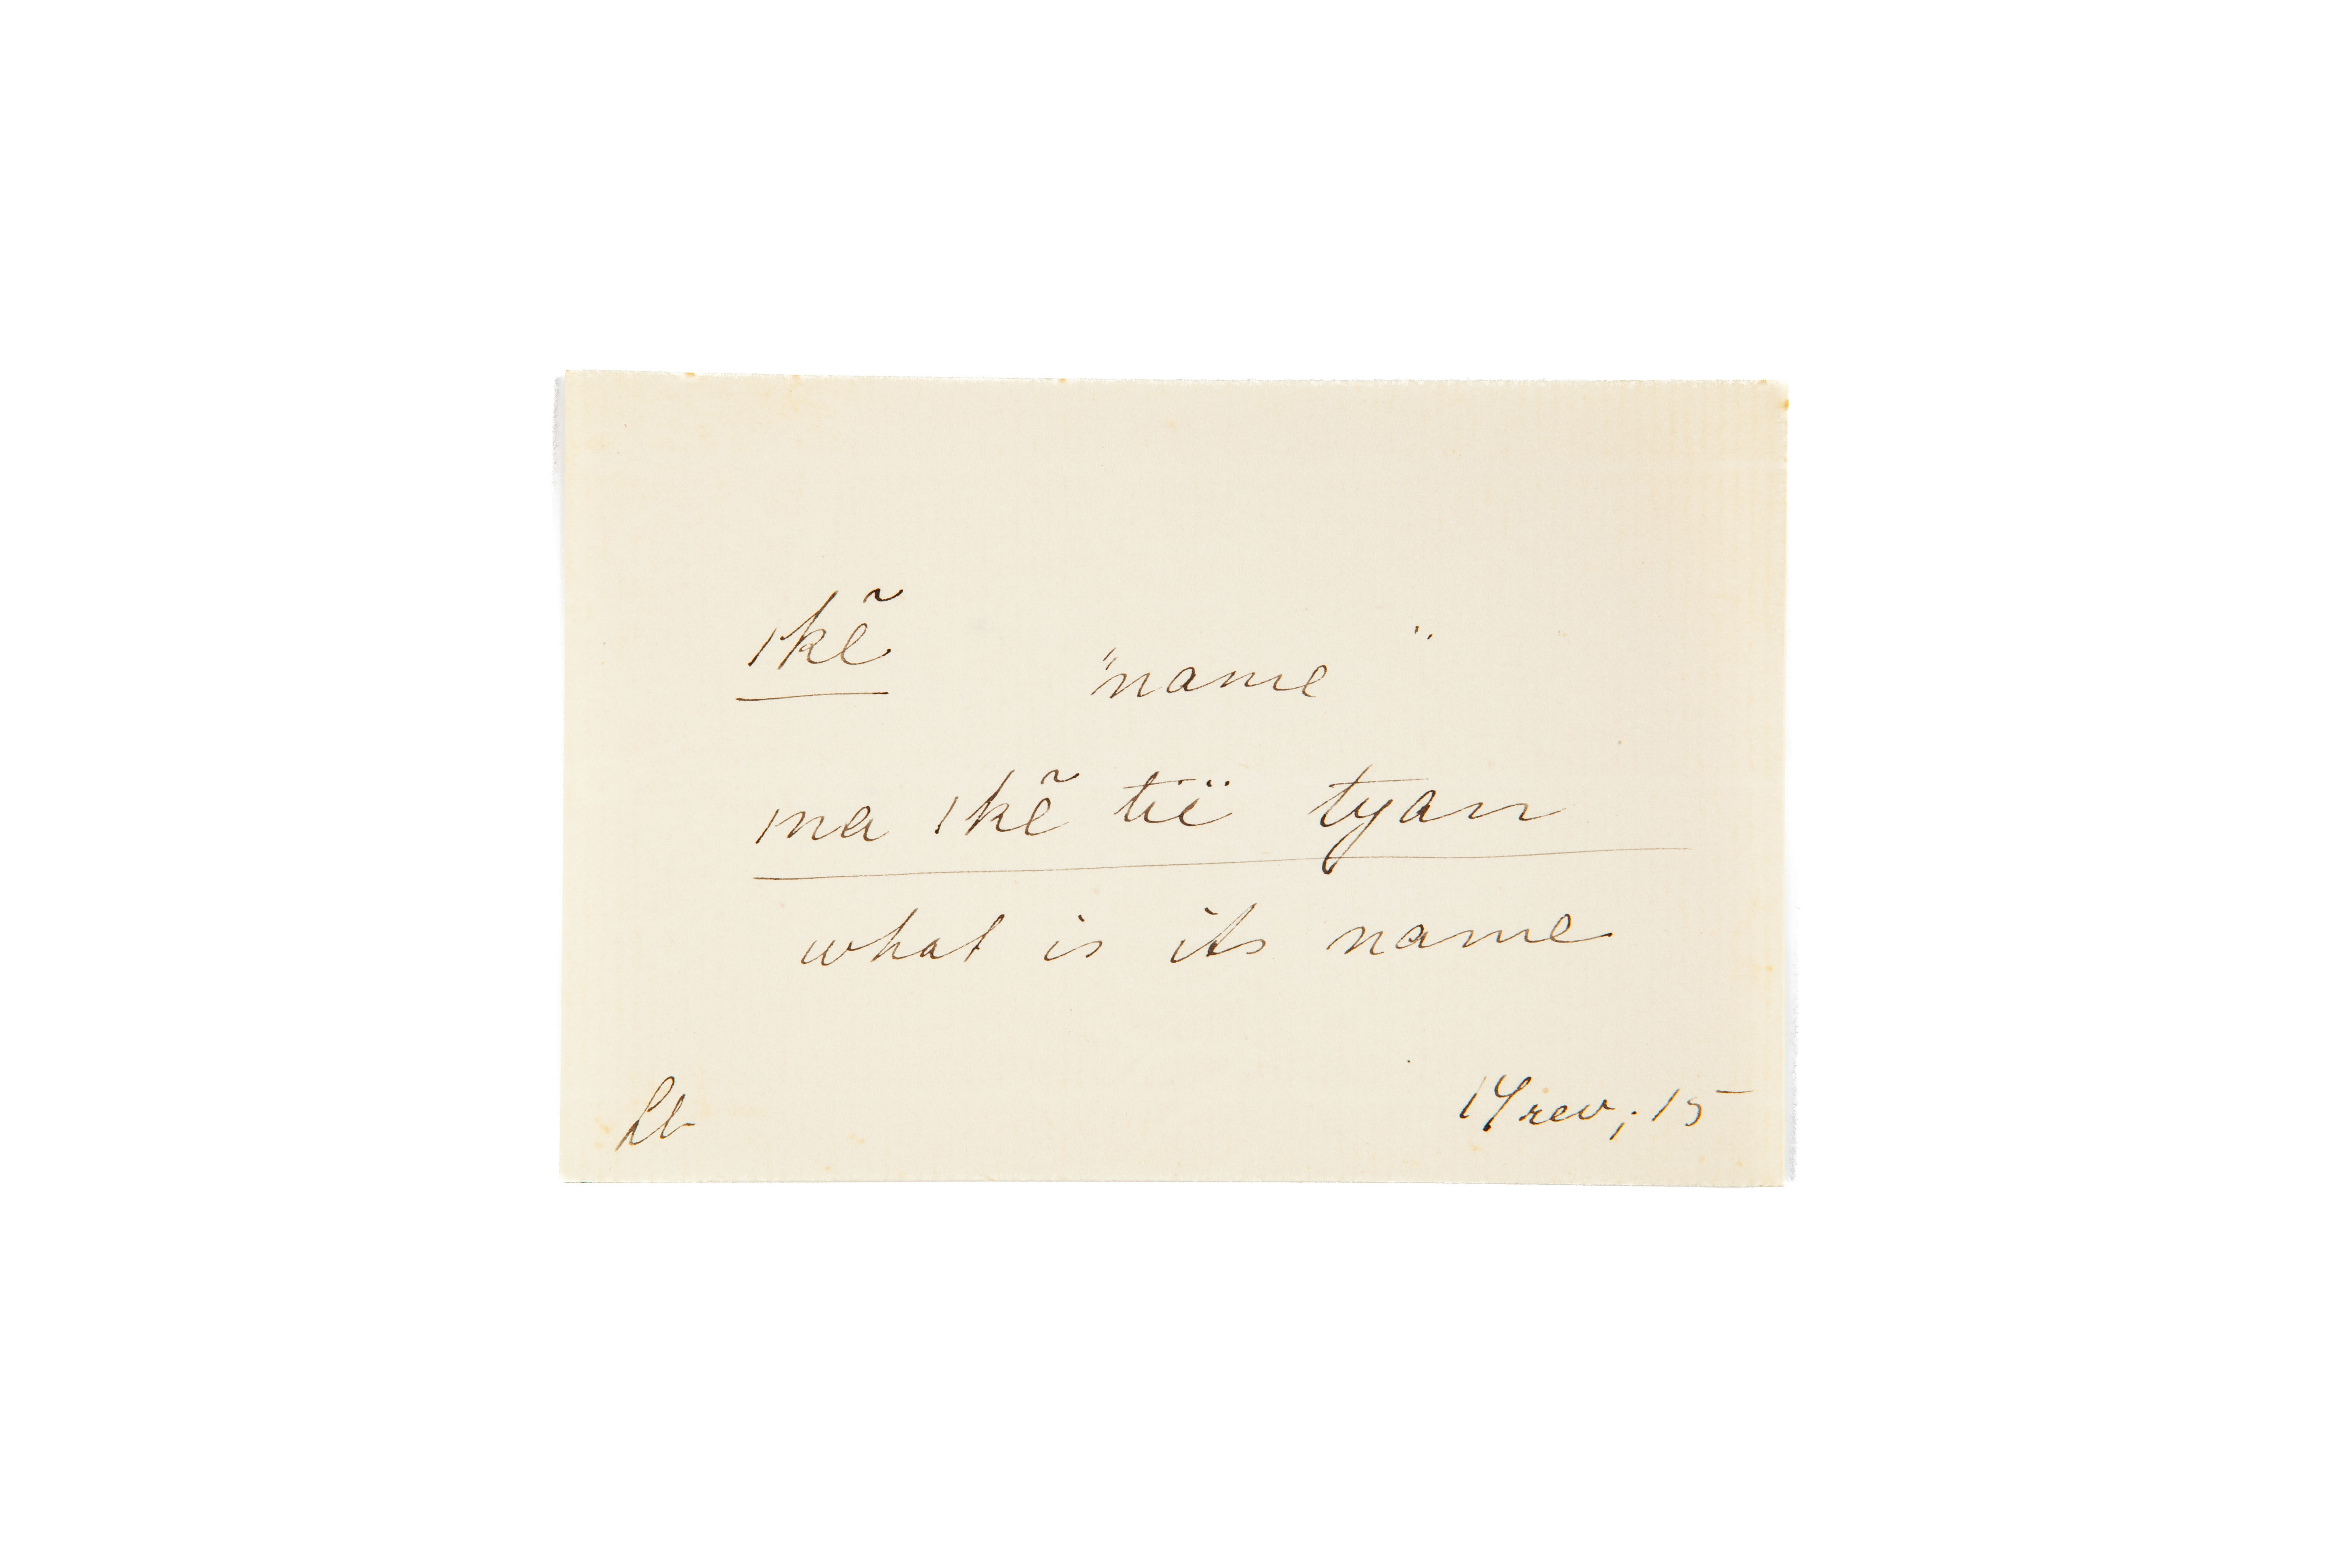 ikẽ "name"
ma ikẽ tië tyan
what is its name
14 rev; 15